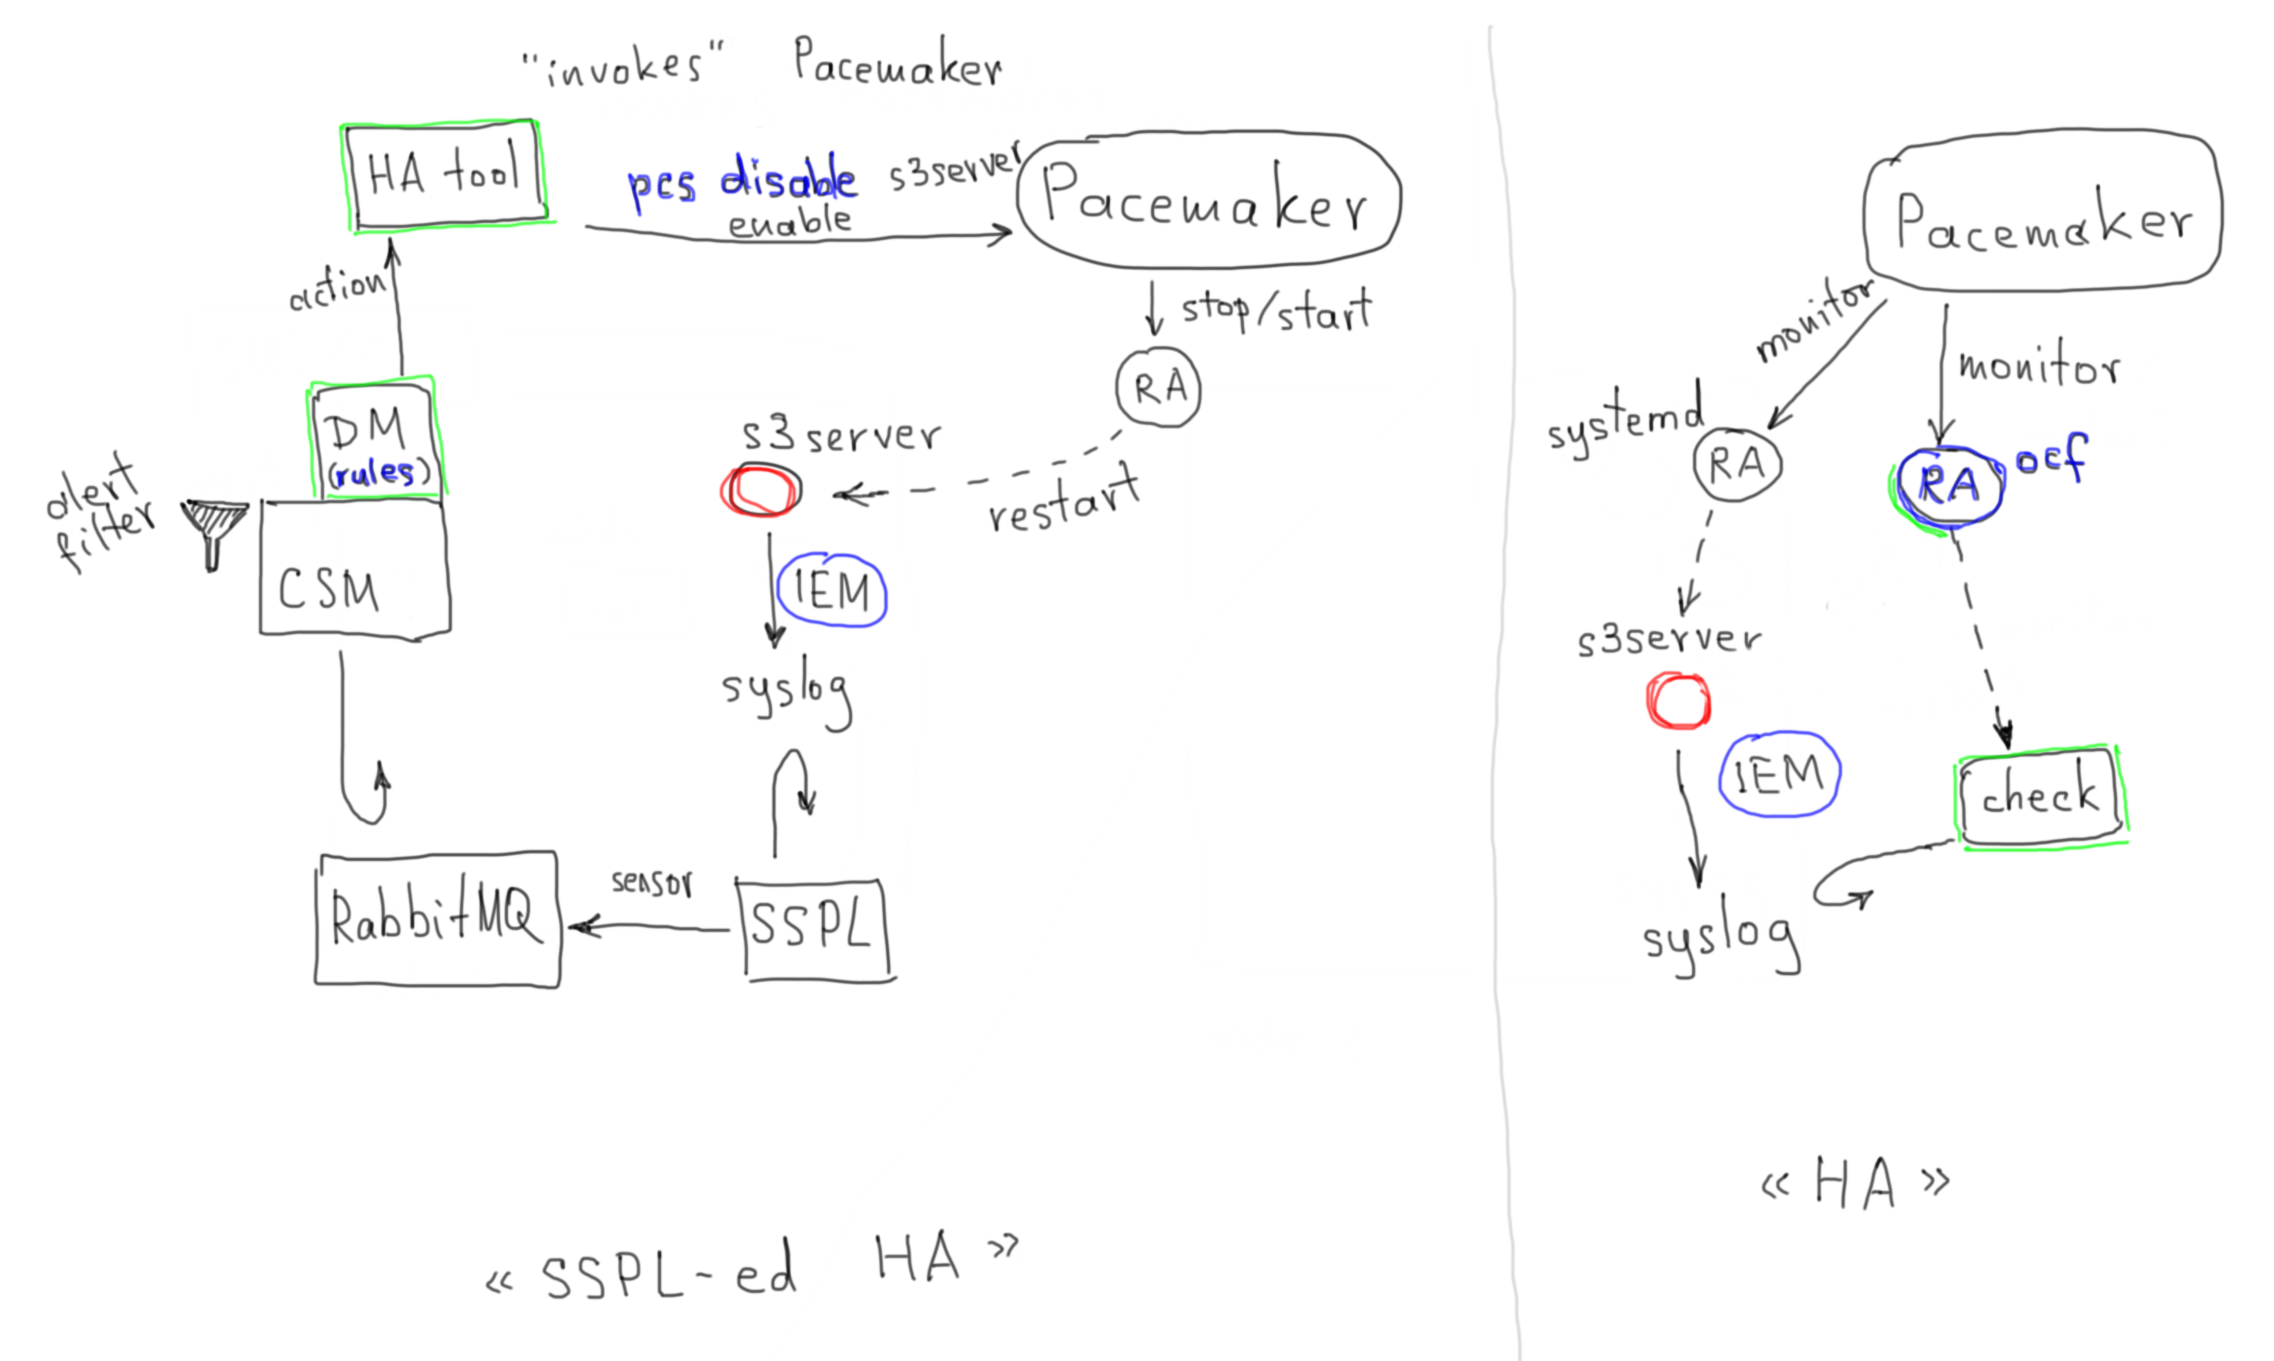 "invokes" Pacemaker
HA tool
pcs disable s3server
enable
Pacemaker
action
stop/start
RA
DM
(rules)
alert
filter
CSM
s3server
restart
IEM
syslog
RabbitMQ
sensor
SSPL
« SSPL-ed HA »
Pacemaker
monitor
monitor
systemd
RA
RA
ocf
s3server
IEM
check
syslog
« HA »